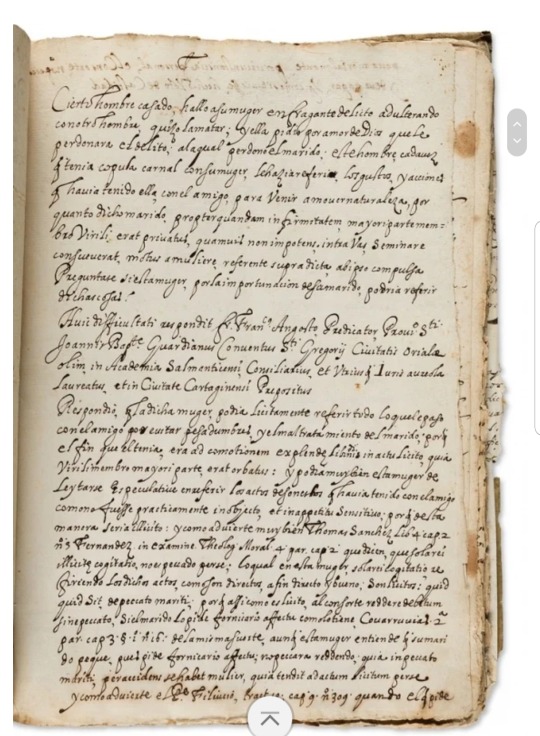 Cierto hombre casado, hallo a su muger en fragante delito adulterando
con otro hombre, quizo la matar; y ella pidio por amor de Dios que le
perdonara el delito, a la qual perdono el marido: este hombre cada vez
q tenia copula carnal con su muger, le hazia referir los gustos, y acciones
q havia tenido ella con el amigo, para venir a mover naturaleza, por
quanto dicho marido, propter quandam infirmitatem, mayori parte mem=
bro Virili erat privatus, quamvis non impotens, intra Vas Seminare
consueverat, motus a muliere, referente supra dicta, ab ipso compulsa
Preguntase si esta muger, por la importunacion de su marido, podria referir
dichas cosas?
Huic difficultati respondit fr. Franco Angosto, Predicator Provi Sti
Joannis Bapte Guardianus Conventus Sti Gregorij Civitatis
olim in Academia Salmanticensi Consiliarius, et Utriusq Iuris aureola
Laureatus, et in Civitate Cartaginensi
Respondio, q la dicha muger, podia licitamente referir todo lo que le paso
con el amigo por evitar pesadumbres, y el mal trata miento del marido, porq
el fin que el tenia, era ad comotionem in actu licito quia
Virili membro mayori parte, erat orbatus: y podia muy bien esta muger de
Leytarse Especulative en referir los actos desonestos q havia tenido con el amigo
como no fuesse practicamente in objecto, et in appetitu Sensitivo; porq desta
manera seria illicito: y como advierte muy bien Thomas Sanchez Lib 4 cap 2
n 5 Fernandez, in examine Theolog. Moral. 4 par. cap 2 que dicen, que solo rei
illicite cogitatio, no es pecado per se: lo qual en esta muger
los dichos actos, como son directos, a fin directo y bueno; son licitos: quid
quid Sit de pecato mariti: porq assi como es licito, al consorte reddere debitum
sine pecato, Si el marido lo pide fornicario affectu como lo tiene Covarruvias 2
par. cap 3 § 1 n 6: de la misma suerte, aunq esta muger entiende q su mari
do peque, pues pide fornicario affectu; no pecara reddendo: quia in pecato
mariti, per accidens se habet mulier, quia tendit ad actum licitum per se
y como advierte el Pe Filiucio, tract. cap 9 n 309 quando el q pide